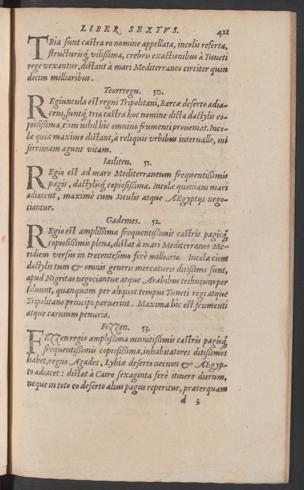 LIBER SEXTVS. 421
TRia sunt castra eo nomine appellata, incolis referta,
structurisq́; vilissima, crebris exactionibus à Tuneti
rege vexantur, distant à mari Mediterraneo circiter quin
decim milliaribus.
Teorregu. 50.
REgiuncula est regni Tripolitani, Barcæ deserto adia-
cens, suntq́; tria castra hoc nomine dicta dactylis co-
piosissima, cùm nihil hîc omnino frumenti proueniat. Inco-
læ quia maximo distant, à reliquis vrbibus interuallo, mi
serrimam agunt vitam.
Iasliten. 51.
REgio est ad mare Mediterraneum frequentissimis
pagis, dactylisq́; copiosissima. Incolæ quoniam mari
adiacent, maximè cum Siculis atque AEgyptijs nego-
ciantur.
Gademes. 52.
REgio est amplissima frequentissimis castris pagisq́;
copiosissimis plena, distat à mari Mediterraneo Me-
ridiem versùs in trecentesimo ferè milliario. Incolæ eius
dactylis tum & omnis generis mercaturis ditissimi sunt,
apud Nigritas negociantur atque Arabibus tributum per
soluunt, quanquam per aliquot tempus Tuneti regi atque
Tripolitano principi paruerint. Maxima hîc est frumenti
atque carnium penuria.
Fezzen. 53.
FEzzen regio amplissima munitissimis castris pagisq́;
frequentissimis copiosissima, inhabitatores ditissimos
habet, regno Agades, Lybiæ deserto necnon & AEgyp-
to adiacet: distat à Cairo sexaginta ferè itinere dierum,
neque in toto eo deserto alius pagus reperitur, præterquam
d 3